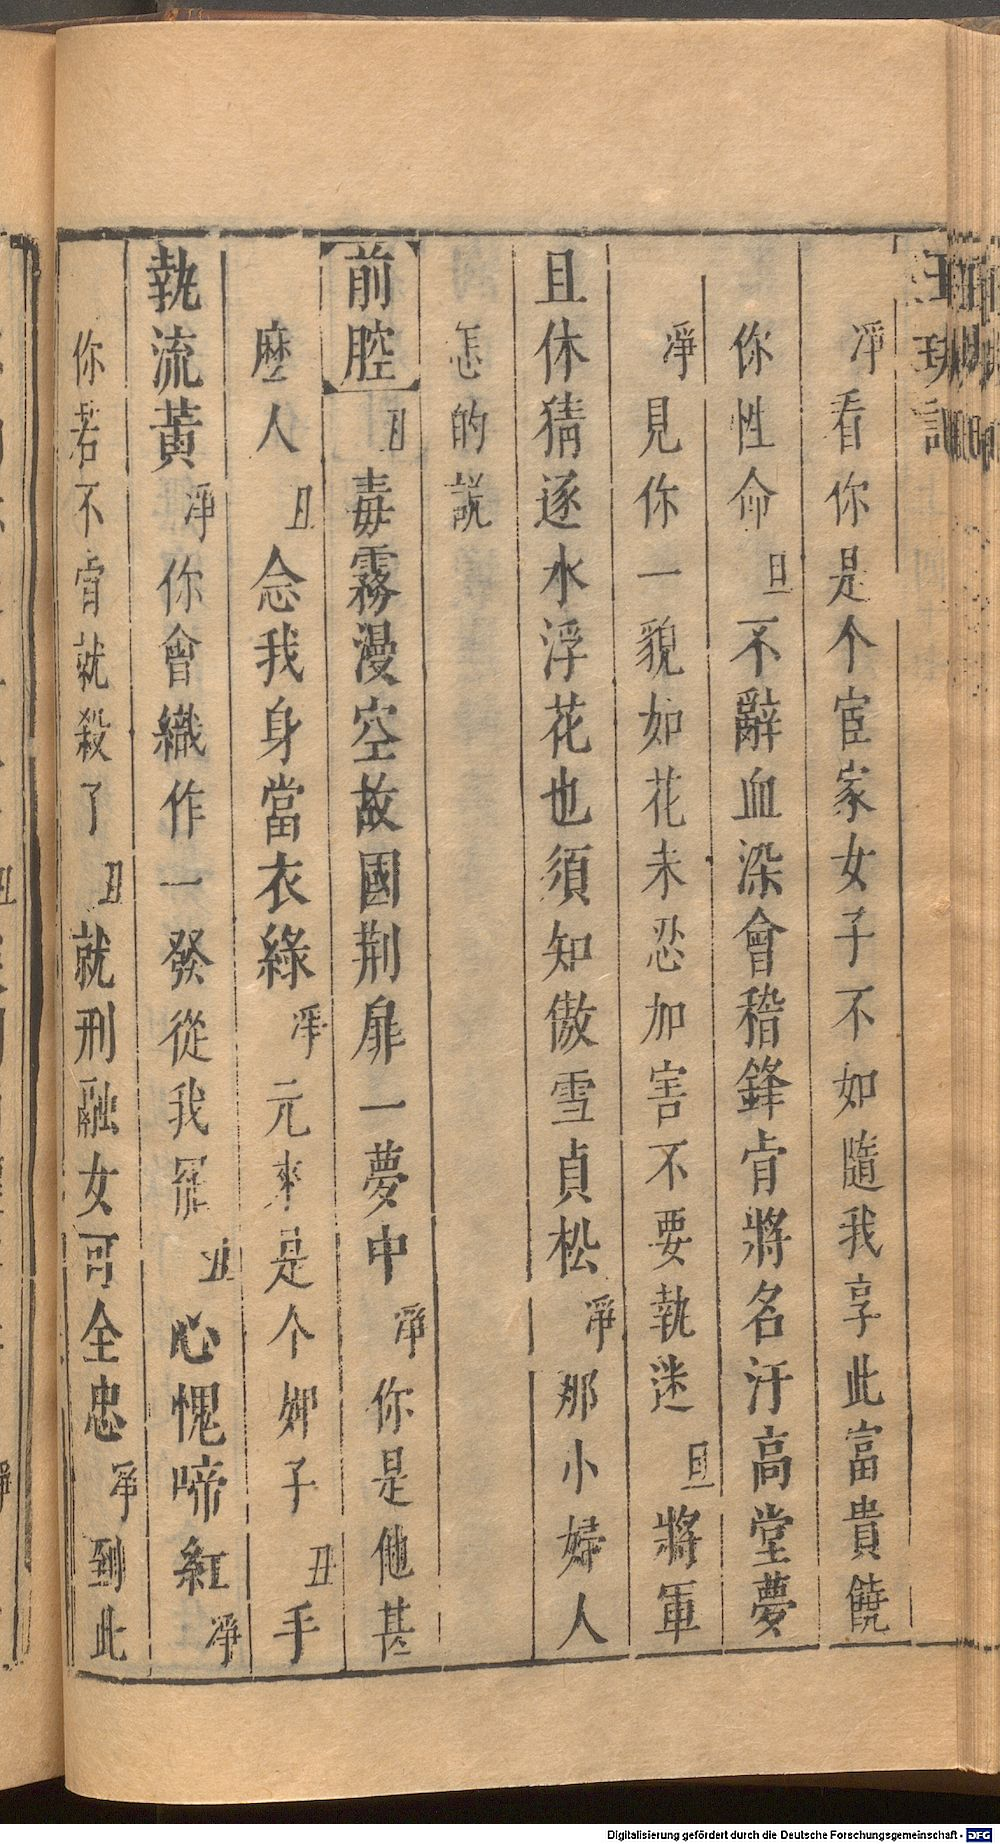 淨看你是个宦家女子不如隨我享此富貴饒
你性命旦不辭血染會稽鋒肯將名汙高堂夢
淨見你一貌如花未忍加害不要執迷旦將軍
且休猜逐水浮花也須知傲雪貞松淨那小婦人
怎的説
前腔丑毒霧漫空故國荆扉一夢中淨你是他甚
麽人丑念我身當衣綠淨元來是个妳子丑手
執流黃淨你會織作一發從我罷丑心愧啼紅淨
你若不肯就殺了丑就刑融女可全忠淨到此
Digitalisierung gefördert durch die Deutsche Forschungsgemeinschaft - DFG